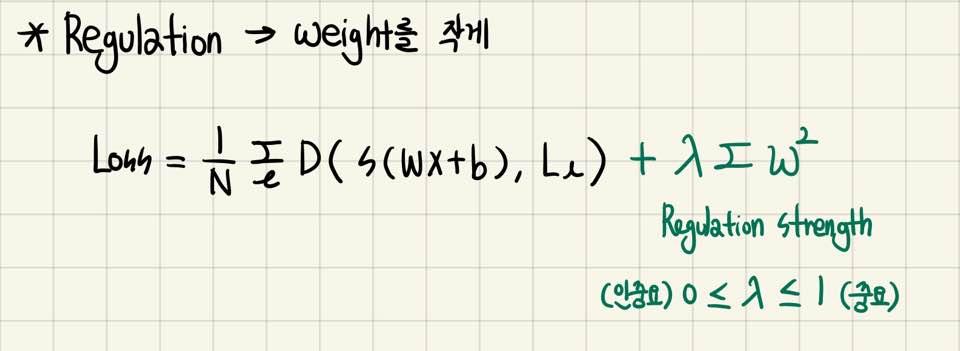 * Regulation → weight를 작게
Loss = 1/N Σ_i D( S(WX+b), L_i ) + λ Σ W²
Regulation strength
(안중요) 0 ≤ λ ≤ 1 (중요)